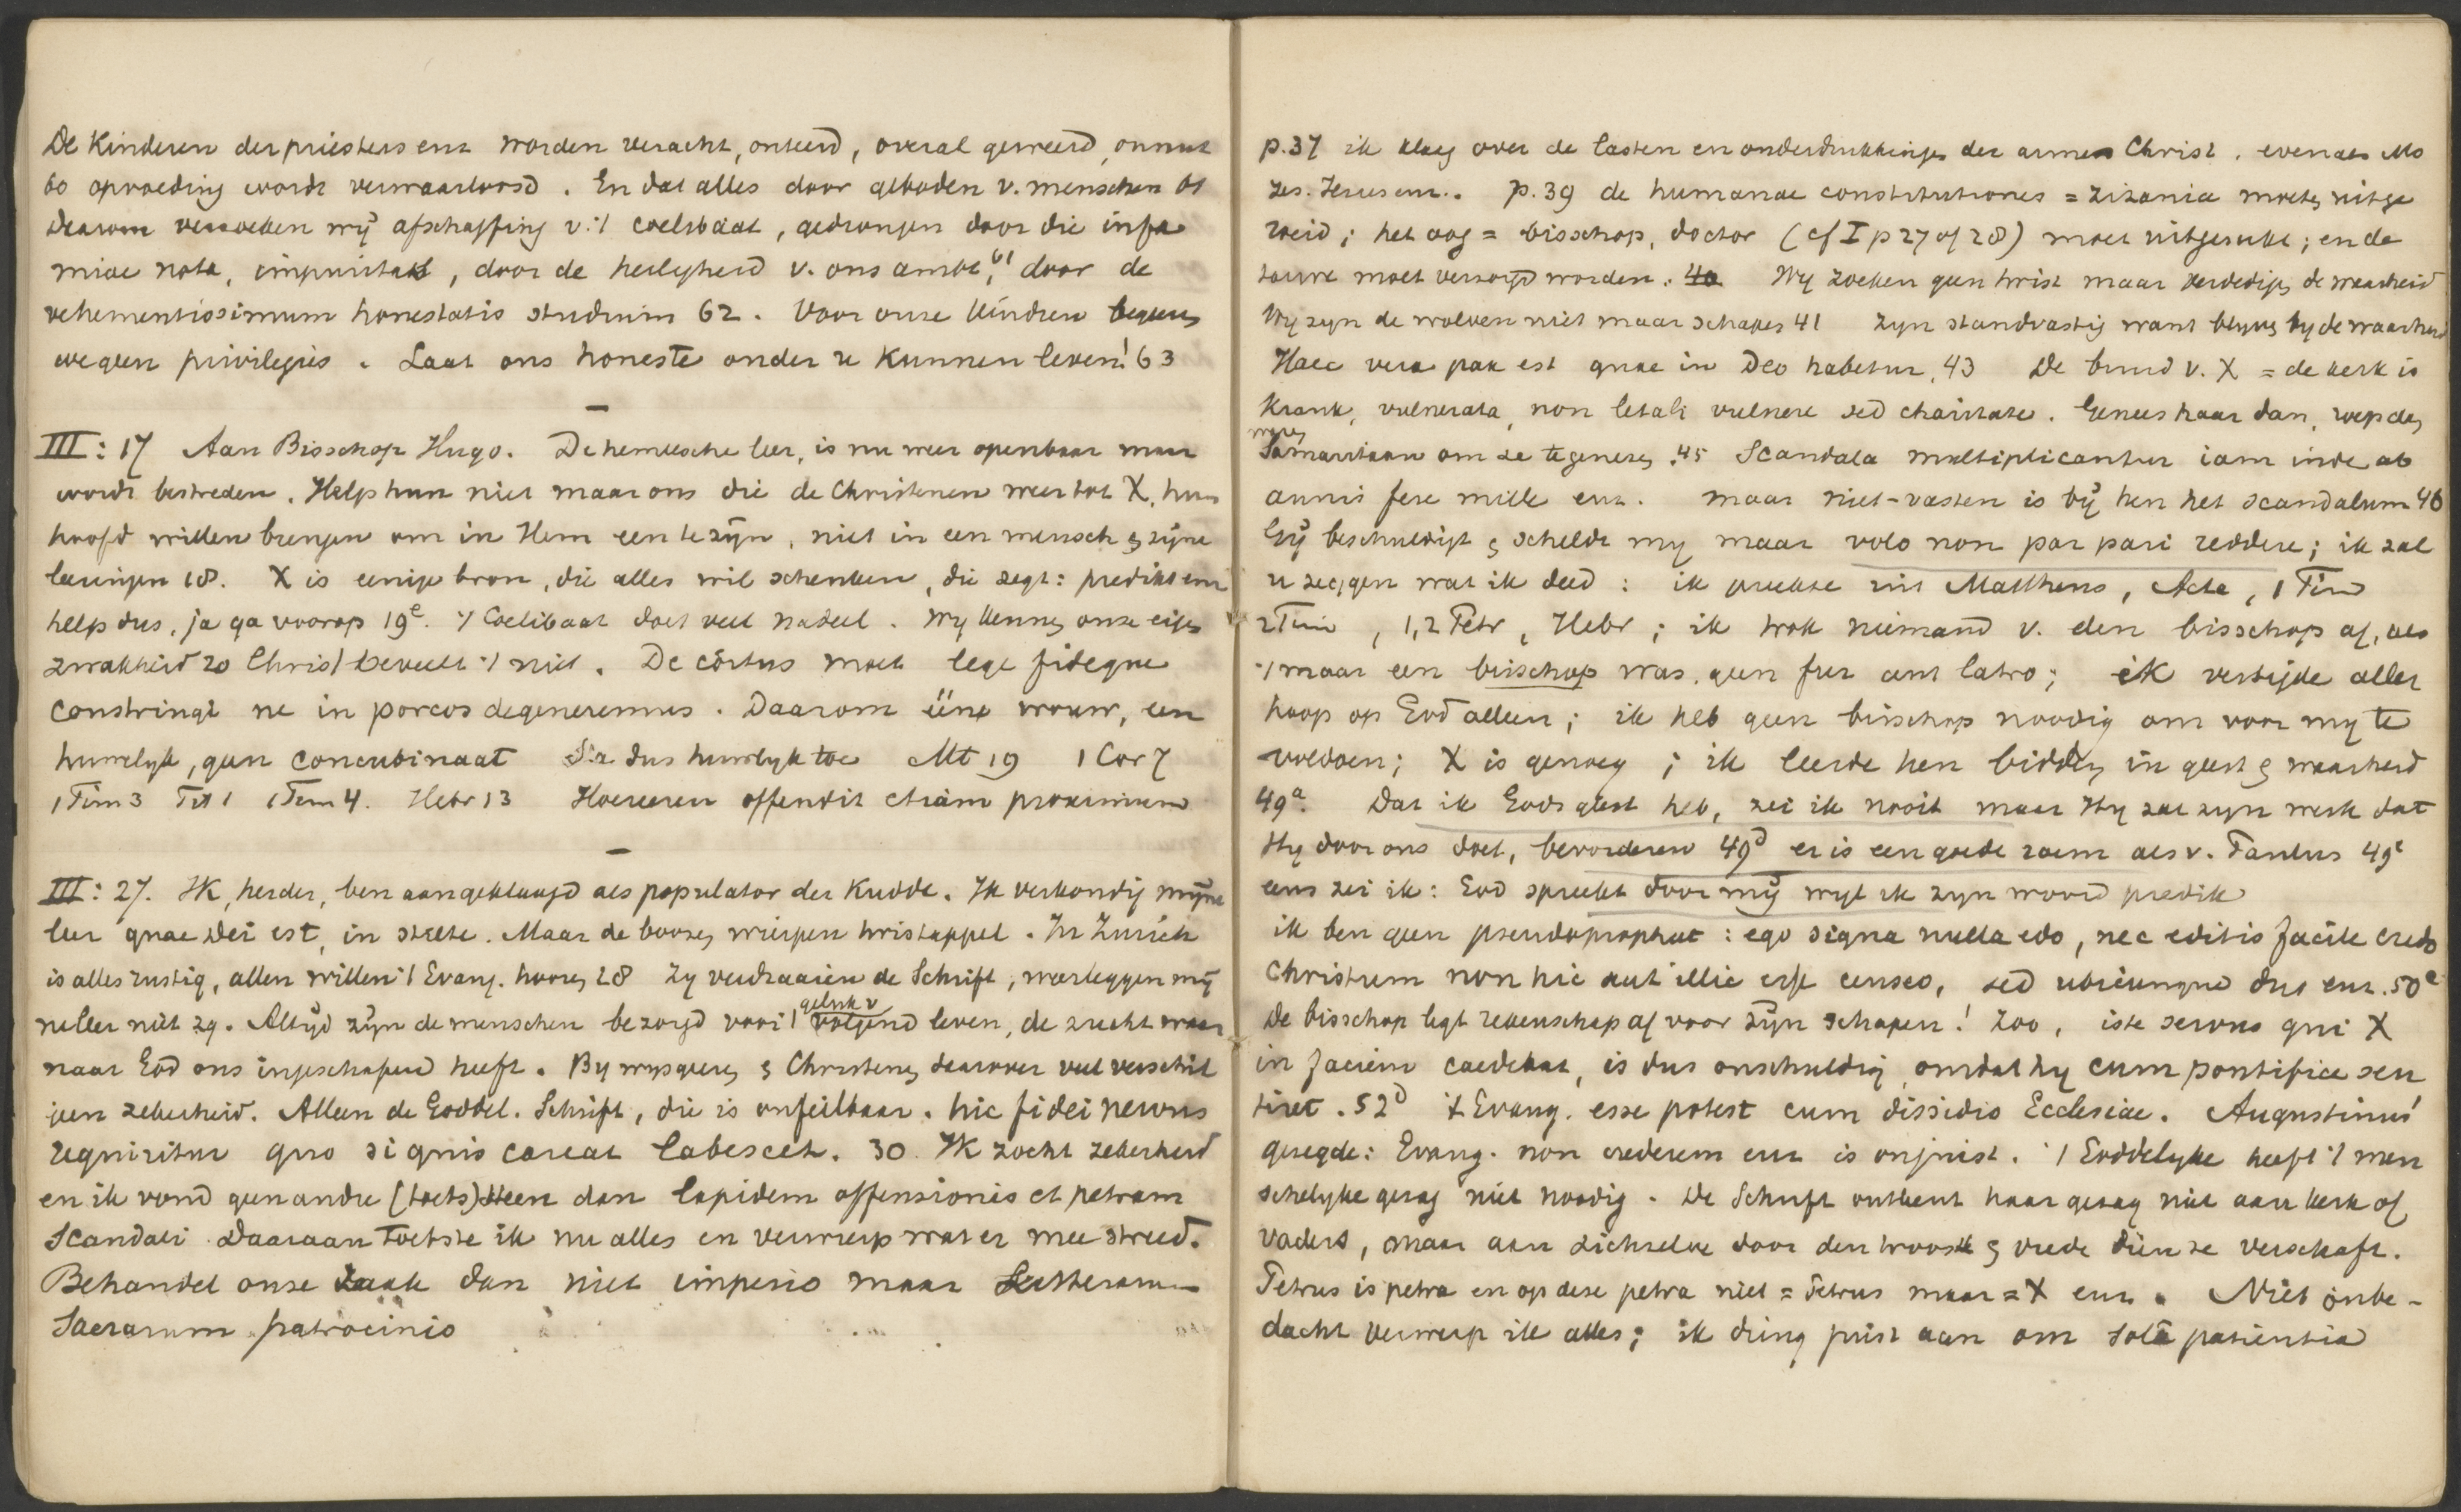 De Kinderen der priesters enz worden veracht, onteerd, overal geweerd, onnut
60 opvoeding wordt verwaarloosd. En dat alles door geboden v. menschen 61
daarom verzoeken wij afschaffing v. 't coelibaat, gedrongen door die infa
miae nota, impuritas, door de heiligheid v. ons ambt, 61 door de
vehementissimum honestatis studium 62. Voor onze kindren begeeren
we geen privilegies. Laat ons honeste onder u kunnen leven! 63
III: 17 Aan Bisschop Hugo. De hemelsche leer, is nu weer openbaar maar
wordt bestreden. Help hun niet maar ons die de Christenen weer tot X, hun
hoofd willen brengen om in Hem een te zijn, niet in een mensch & zijne
leeringen 18. X is eenige bron, die alles wil schenken, die zegt: predikt enz
help dus, ja ga voorop 19c. 't Coelibaat doet veel nadeel. Wij kennen onze eigen
zwakheid 20 Christ beveelt 't niet. De coetus moet lege fideque
constringi ne in porcos degeneremus. Daarom ééne vrouw, een
huwelijk, geen concubinaat Sta dus huwelijk toe Mt 19 1 Cor 7
1 Tim 3 Tit 1 1 Tim 4. Hebr 13 Hoereeren offendit etiam proximum
III: 27. Ik, herder, ben aangeklaagd als populator der kudde. Ik verkondig mijne
leer quae Dei est, in stilte. Maar de boozen wierpen twistappel. In Zurich
is alles rustig, allen willen 't Evang. hooren 28 Zij verdraaien de Schrift, weerleggen mij
neller niet 29. Altijd zijn de menschen bezorgd voor 't geluk v volgend leven, de zucht waar
naar God ons ingeschapen heeft. Bij wijsgeren & Christenen daarover veel verschil
geen zekerheid. Alleen de Goddel. Schrift, die is onfeilbaar. hic fidei nervus
requiritur quo si quis careat labescet. 30 Ik zocht zekerheid
en ik vond geen andre (toets)steen dan lapidem offensionis et petram
Scandali Daaraan toetste ik nu alles en verwierp wat er mee streed.
Behandel onze zaak dan niet imperio maar Litterarum
Sacrarum patrocinio
p.37 ik klaag over de lasten en onderdrukkingen der armen Christ. evenals Mo
zes. Jezus enz. p.39 de humanae constitutiones = zizania moeten uitge
roeid; het oog = bisschop, doctor (cf I p 27 of 28) moet uitgerukt; en de
touwe moet verzorgd worden. 40 Wij zoeken geen twist maar verdedigen de waarheid
Wij zijn de wolven niet maar schapen 41 zijn standvastig want blijven bij de waarheid
Haec vera pax est quae in Deo habetur, 43 De bruid v. X = de kerk is
krank, vulnerata, non letali vulnere sed charitate. Genees haar dan, roep den
waren
Samaritaan om ze te genezen. 45 Scandala multiplicantur iam inde ab
annis fere mille enz. maar niet-vasten is bij hen het scandalum 46
Gij beschuldigt & scheldt mij maar volo non par pari reddere; ik zal
u zeggen wat ik deed: ik preekte uit Mattheus, Acta, 1 Tim
2 Tim, 1,2 Petr, Hebr; ik trok niemand v. den bisschop af, als
't maar een bisschop was, geen fur aut latro; ik vestigde aller
hoop op God alleen; ik heb geen bisschop noodig om voor mij te
voldoen; X is genoeg; ik leerde hen bidden in geest & waarheid
49a. Dat ik Gods geest heb, zei ik nooit maar Hij zal zijn werk dat
Hij door ons doet, bevorderen 49d er is een goede roem als v. Paulus 49e
eens zei ik: God spreekt door mij wijl ik zijn woord predik
ik ben geen pseudopropheet: ego signa nulla edo, nec editis facile credo
Christum non hic aut illic esse censeo, sed ubicunque duo enz. 50e
De bisschop legt rekenschap af voor zijn schapen! Zoo, iste servus qui X
in faciem caedebat, is dus onschuldig, omdat hij cum pontifice sen
tiret. 52d 't Evang. esse potest cum dissidio Ecclesiae. Augustinus'
gezegde: Evang. non crederem enz is onjuist. 't Goddelijke heeft 't men
schelijke gezag niet noodig. De Schrift ontleent haar gezag niet aan kerk of
vaders, maar aan zichzelve door den troost & vrede dien ze verschaft.
Petrus is petra en op deze petra niet = Petrus maar = X enz. Niet onbe-
dacht verwerp ik alles; ik dring juist aan om sola patientia